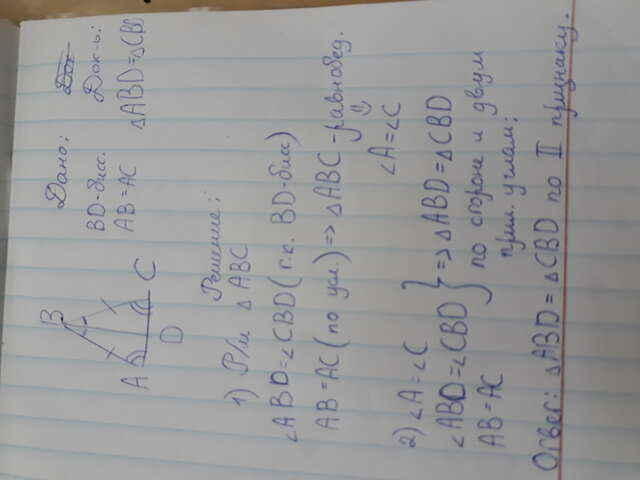 B
A
C
D
Дано:
BD-бисс.
AB=AC
Док-ь:
△ABD=△CBD
Решение:
1) Р/м △ABC
∠ABD=∠CBD (т.к. BD-бисс)
AB=AC (по усл.) => △ABC -равнобед.
⇓
∠A=∠C
2) ∠A=∠C
∠ABD=∠CBD
AB=AC
} => △ABD=△CBD
по стороне и двум
прил. углам;
Ответ: △ABD=△CBD по II признаку.